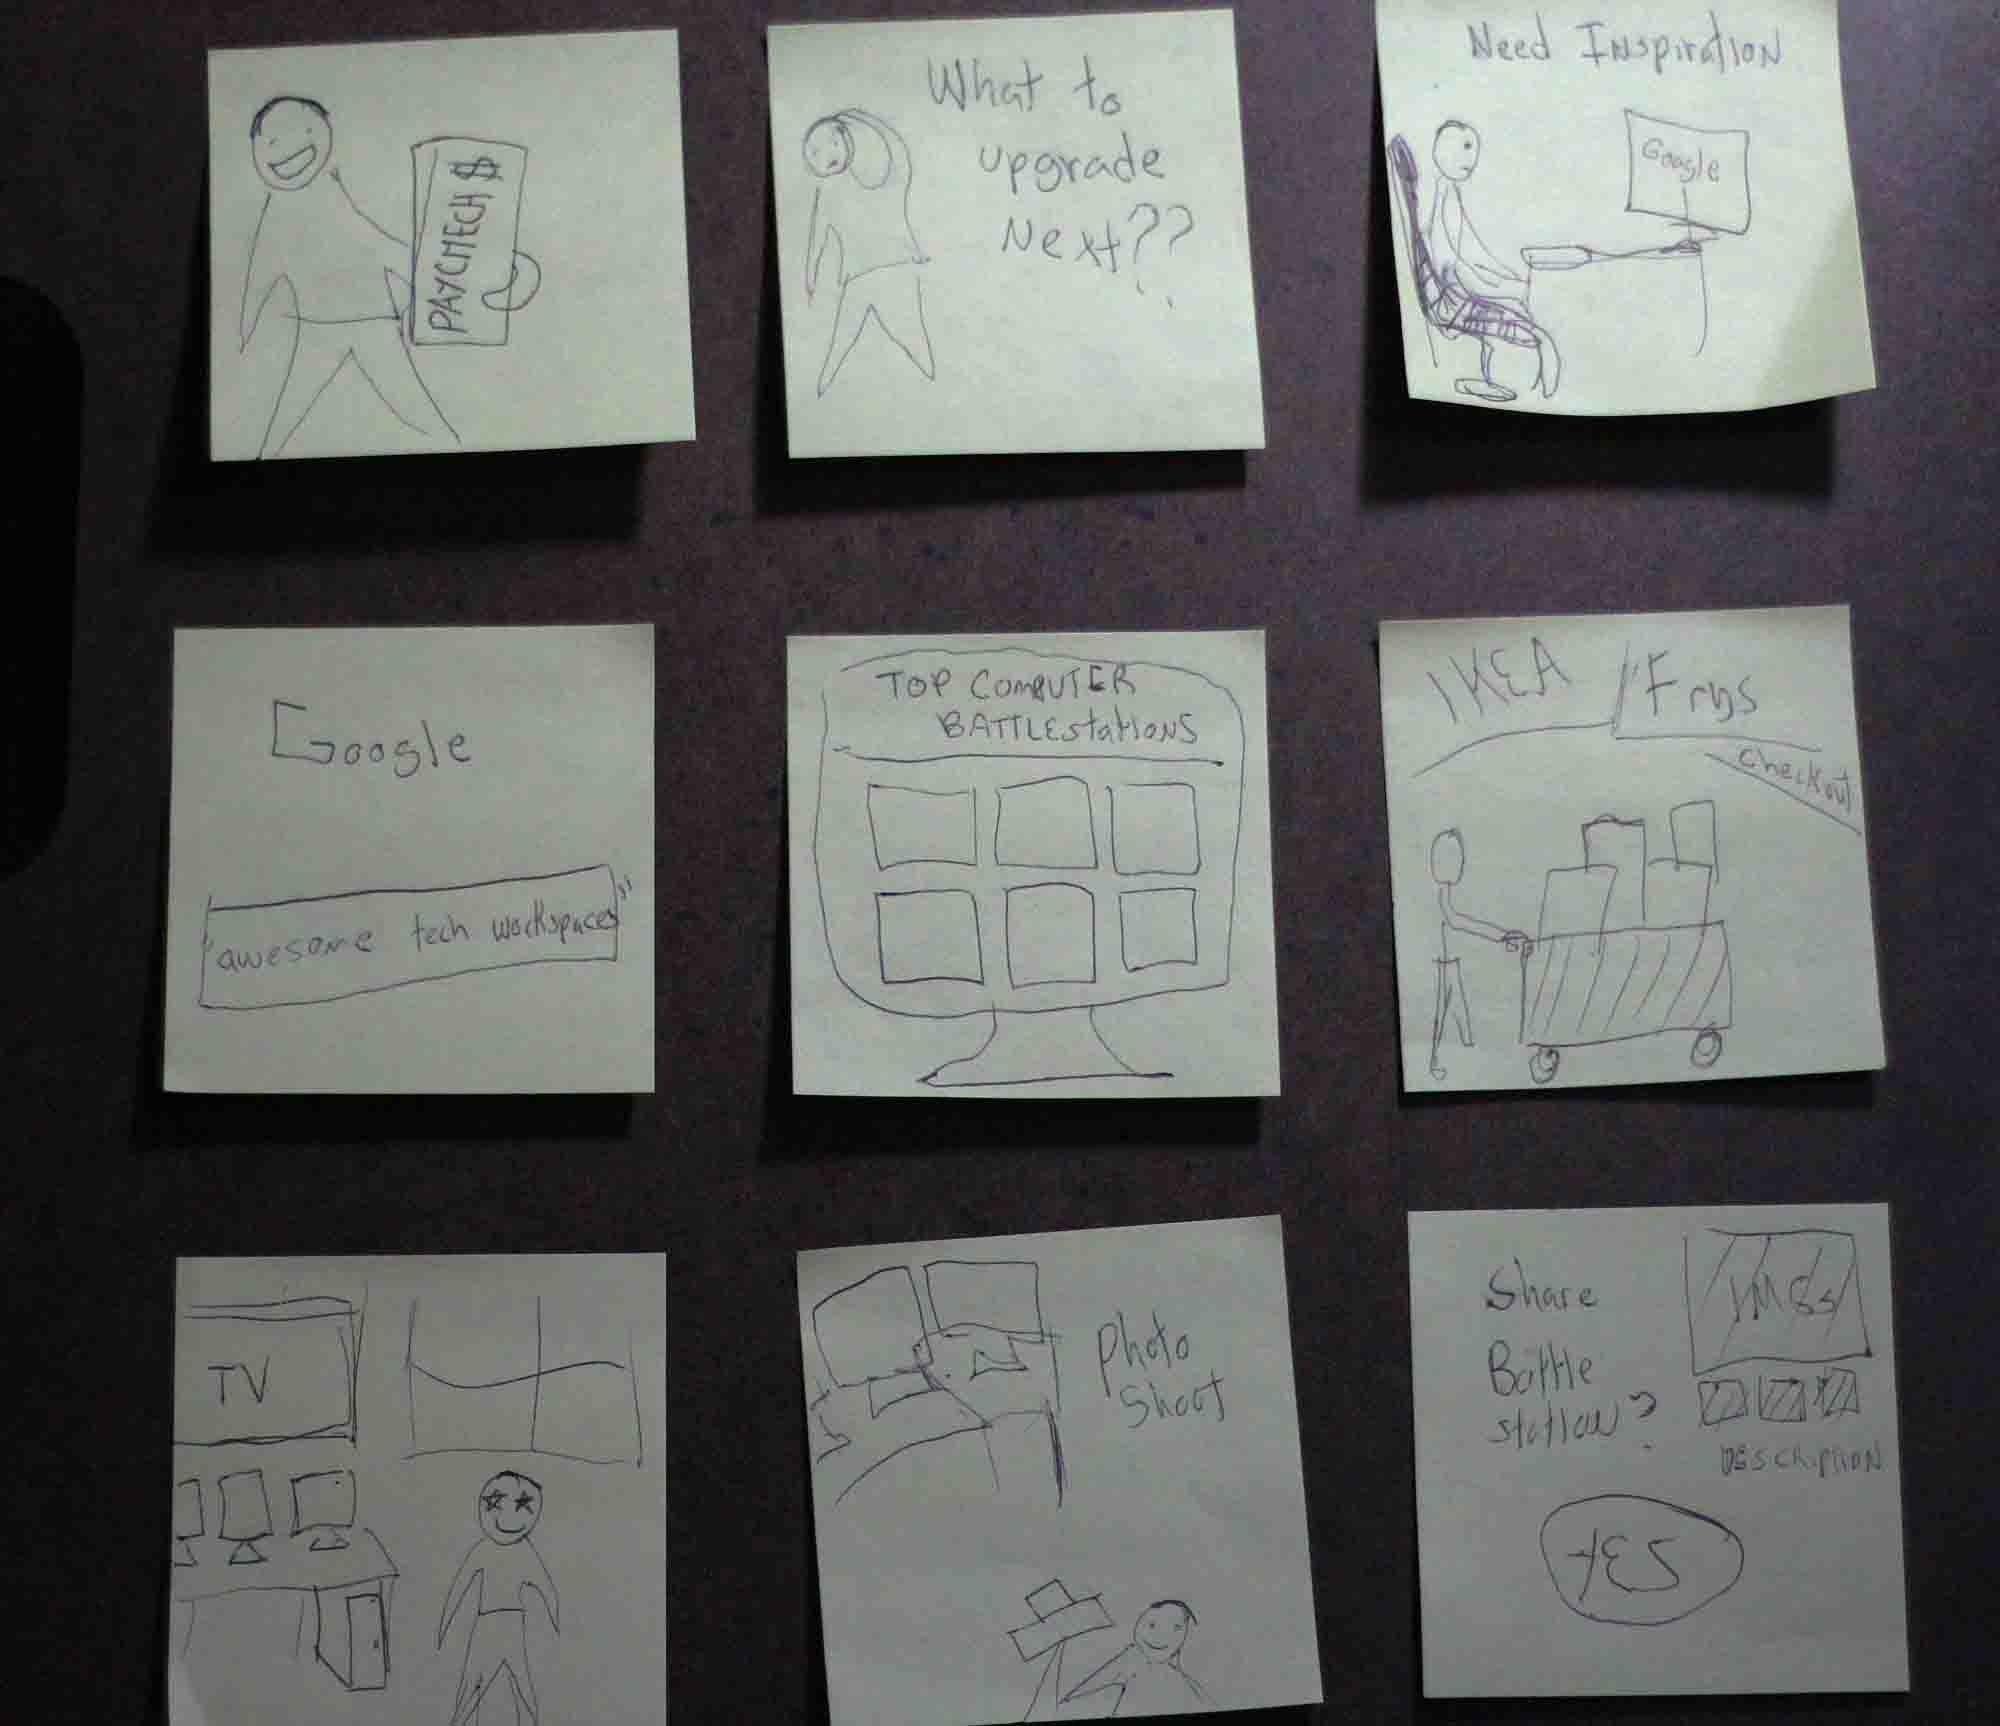 PAYCHECH $
What to
upgrade
Next??
Need Inspiration
Google
Google
"awesome tech workspaces"
TOP COMPUTER
BATTLEstations
IKEA / Frys
Checkout
TV
Photo
Shoot
Share
Battle
station?
IMGs
DESCRIPTION
YES